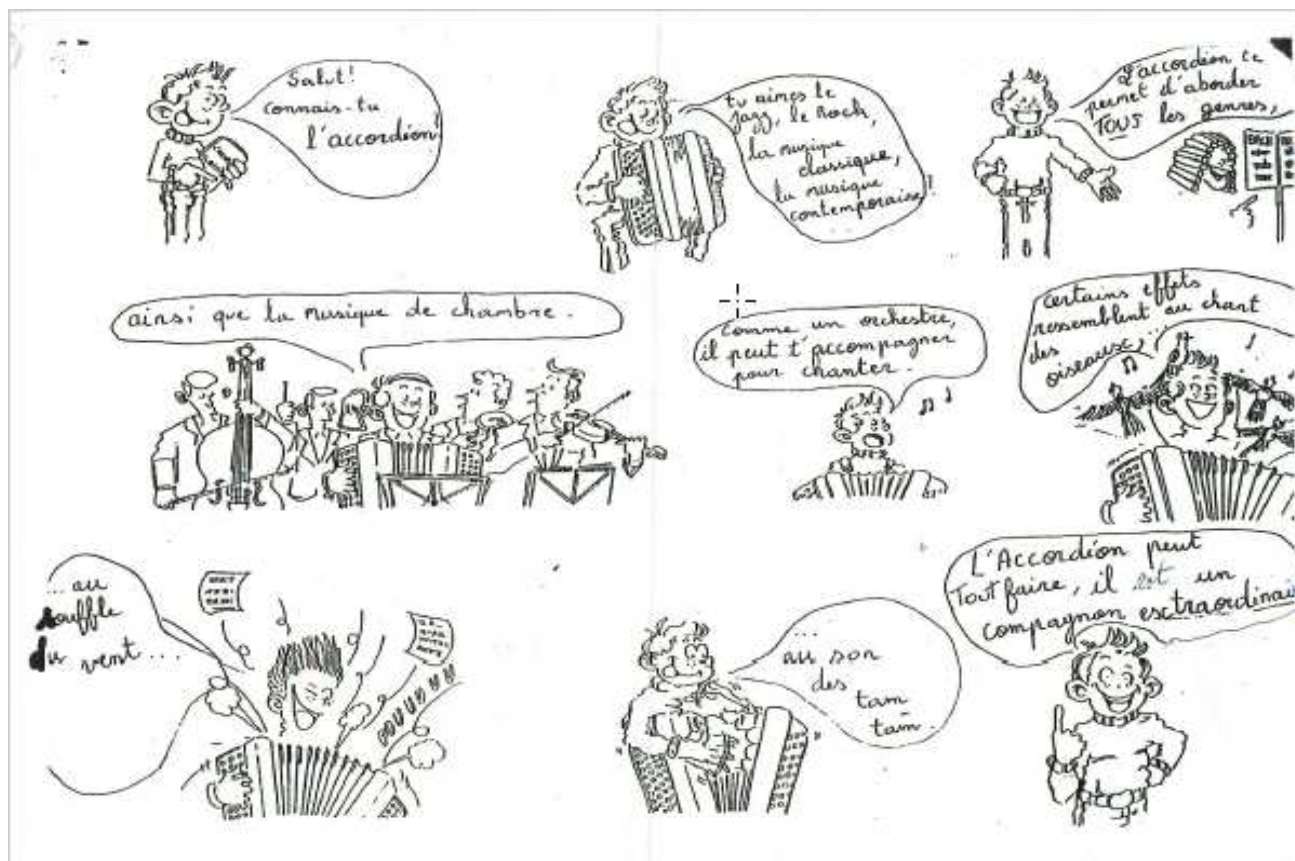 Salut!
connais-tu
l'accordéon!
tu aimes le
jazz, le Rock,
la musique
classique,
la musique
contemporaine?
L'accordéon te
permet d'aborder
TOUS les genres,
BACH
ainsi que la musique de chambre.
comme un orchestre,
il peut t'accompagner
pour chanter.
certains effets
ressemblent au chant
des
oiseaux,
...au
souffle
du vent...
...
au son
des
tam
tam.
L'Accordéon peut
Tout faire, il est un
compagnon extraordinai